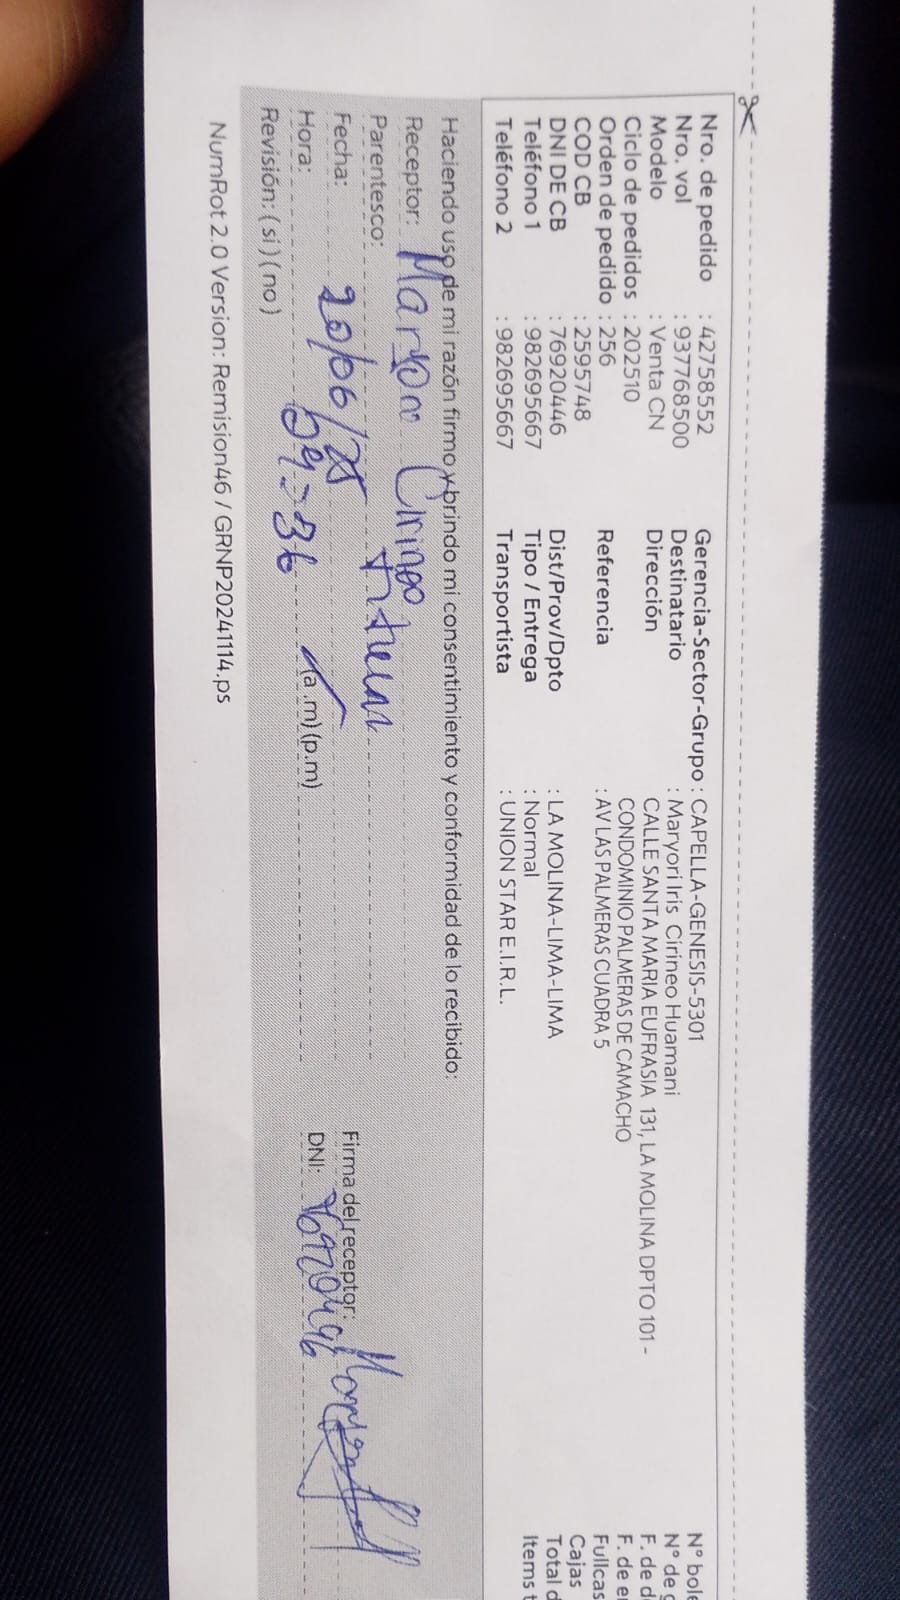 Nro. de pedido : 42758552
Nro. vol : 937768500
Modelo : Venta CN
Ciclo de pedidos : 202510
Orden de pedido : 256
COD CB : 2595748
DNI DE CB : 76920446
Teléfono 1 : 982695667
Teléfono 2 : 982695667
Gerencia-Sector-Grupo : CAPELLA-GENESIS-5301
Destinatario : Maryori Iris Cirineo Huamani
Dirección CALLE SANTA MARIA EUFRASIA 131, LA MOLINA DPTO 101 -
CONDOMINIO PALMERAS DE CAMACHO
Referencia : AV LAS PALMERAS CUADRA 5
Dist/Prov/Dpto : LA MOLINA-LIMA-LIMA
Tipo / Entrega : Normal
Transportista : UNION STAR E.I.R.L.
N° bole
N° de g
F. de d
F. de e
Fullcas
Cajas
Total d
Items t
Haciendo uso de mi razón firmo y brindo mi consentimiento y conformidad de lo recibido:
Receptor:
Parentesco: titular
Fecha: 20/06/25
Hora: 09:36 (a.m)(p.m)
Revisión: (si) (no)
Firma del receptor:
DNI:
NumRot 2.0 Version: Remision46 / GRNP20241114.ps